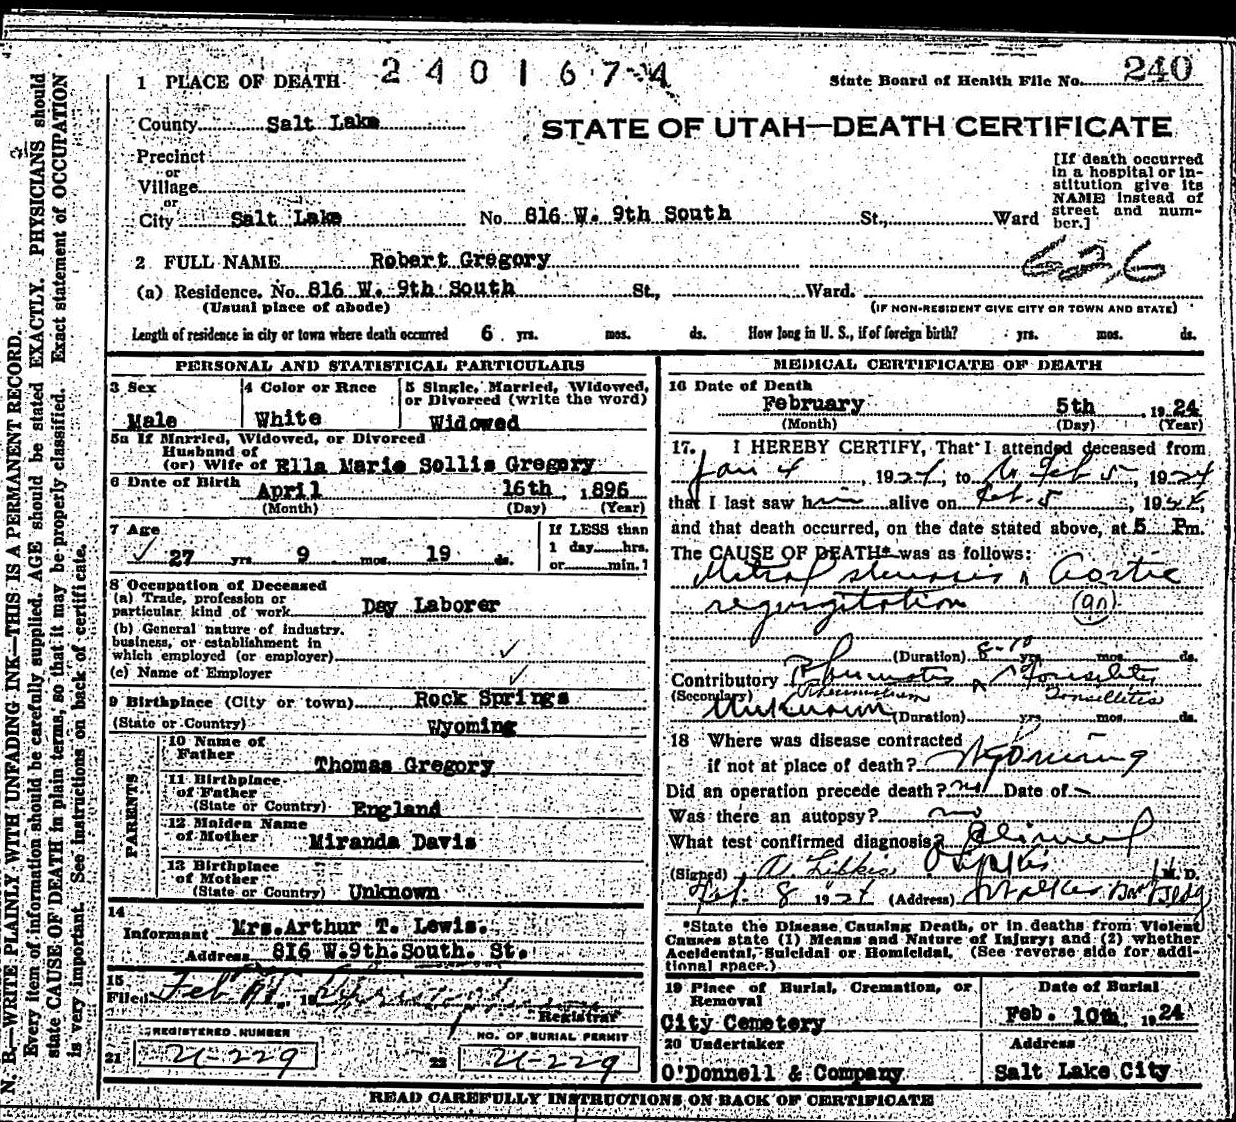 1 PLACE OF DEATH 2401674 State Board of Health File No. 240
County Salt Lake
STATE OF UTAH—DEATH CERTIFICATE
Precinct
or
Village
or
City Salt Lake No. 816 W. 9th South St., Ward
[If death occurred
in a hospital or in-
stitution give its
NAME instead of
street and num-
ber.]
2 FULL NAME Robert Gregory
626
(a) Residence. No. 816 W. 9th South St., Ward.
(Usual place of abode) (IF NON-RESIDENT GIVE CITY OR TOWN AND STATE)
Length of residence in city or town where death occurred 6 yrs. mos. ds. How long in U. S., if of foreign birth? yrs. mos. ds.
PERSONAL AND STATISTICAL PARTICULARS
3 Sex
Male
4 Color or Race
White
5 Single, Married, Widowed,
or Divorced (write the word)
Widowed
5a If Married, Widowed, or Divorced
Husband of
(or) Wife of Ella Marie Sollis Gregory
6 Date of Birth
April 16th, 1896
(Month) (Day) (Year)
7 Age
27 yrs 9 mos. 19 ds.
If LESS than
1 day hrs.
or min.1
8 Occupation of Deceased
(a) Trade, profession or
particular kind of work Day Laborer
(b) General nature of industry,
business, or establishment in
which employed (or employer)
(c) Name of Employer
9 Birthplace (City or town) Rock Springs
(State or Country) Wyoming
PARENTS
10 Name of
Father Thomas Gregory
11 Birthplace
of Father
(State or Country) England
12 Maiden Name
of Mother Miranda Davis
13 Birthplace
of Mother
(State or Country) Unknown
14
Informant Mrs.Arthur T. Lewis.
Address 816 W.9th.South. St.
15
Filed Feb 19
Registrar
REGISTERED NUMBER NO. OF BURIAL PERMIT
21 21-229 22 21-229
MEDICAL CERTIFICATE OF DEATH
16 Date of Death
February 5th, 1924
(Month) (Day) (Year)
17. I HEREBY CERTIFY, That I attended deceased from
Jan 4, 1924, to Feb 5, 1924
that I last saw him alive on Feb. 5, 1924,
and that death occurred, on the date stated above, at 5 Pm.
The CAUSE OF DEATH* was as follows:
Mitral stenosis & Aortic
regurgitation (90)
(Duration) 8-10 yrs. mos. ds.
Contributory Rheumatis & Tonsilitis
(Secondary) Rheumatism Tonsilitis
Unknown (Duration) yrs. mos. ds.
18 Where was disease contracted
if not at place of death? Wyoming
Did an operation precede death? no Date of —
Was there an autopsy? no
What test confirmed diagnosis? Clinical
(Signed) M. D.
Feb. 8 1924 (Address) Walker Bank Bldg
*State the Disease Causing Death, or in deaths from Violent
Causes state (1) Means and Nature of Injury; and (2) whether
Accidental, Suicidal or Homicidal. (See reverse side for addi-
tional space.)
19 Place of Burial, Cremation, or
Removal
City Cemetery
Date of Burial
Feb. 10th, 1924
20 Undertaker
O'Donnell & Company
Address
Salt Lake City
READ CAREFULLY INSTRUCTIONS ON BACK OF CERTIFICATE
N. B.—WRITE PLAINLY WITH UNFADING INK—THIS IS A PERMANENT RECORD.
Every item of information should be carefully supplied. AGE should be stated EXACTLY. PHYSICIANS should
state CAUSE OF DEATH in plain terms, so that it may be properly classified. Exact statement of OCCUPATION
is very important. See instructions on back of certificate.